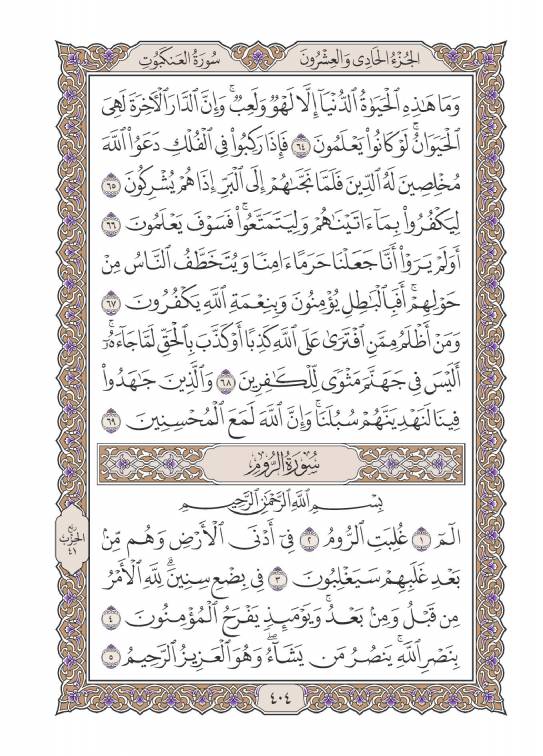 الجُزْءُ الحَادِي وَالعِشْرُونَ
سُورَةُ العَنكَبُوتِ
وَمَا هَٰذِهِ ٱلْحَيَوٰةُ ٱلدُّنْيَآ إِلَّا لَهْوٌ وَلَعِبٌ ۚ وَإِنَّ ٱلدَّارَ ٱلْـَٔاخِرَةَ لَهِىَ
ٱلْحَيَوَانُ ۚ لَوْ كَانُوا۟ يَعْلَمُونَ ٦٤ فَإِذَا رَكِبُوا۟ فِى ٱلْفُلْكِ دَعَوُا۟ ٱللَّهَ
مُخْلِصِينَ لَهُ ٱلدِّينَ فَلَمَّا نَجَّىٰهُمْ إِلَى ٱلْبَرِّ إِذَا هُمْ يُشْرِكُونَ ٦٥
لِيَكْفُرُوا۟ بِمَآ ءَاتَيْنَٰهُمْ وَلِيَتَمَتَّعُوا۟ ۖ فَسَوْفَ يَعْلَمُونَ ٦٦
أَوَلَمْ يَرَوْا۟ أَنَّا جَعَلْنَا حَرَمًا ءَامِنًا وَيُتَخَطَّفُ ٱلنَّاسُ مِنْ
حَوْلِهِمْ ۚ أَفَبِٱلْبَٰطِلِ يُؤْمِنُونَ وَبِنِعْمَةِ ٱللَّهِ يَكْفُرُونَ ٦٧
وَمَنْ أَظْلَمُ مِمَّنِ ٱفْتَرَىٰ عَلَى ٱللَّهِ كَذِبًا أَوْ كَذَّبَ بِٱلْحَقِّ لَمَّا جَآءَهُۥٓ ۚ
أَلَيْسَ فِى جَهَنَّمَ مَثْوًى لِّلْكَٰفِرِينَ ٦٨ وَٱلَّذِينَ جَٰهَدُوا۟
فِينَا لَنَهْدِيَنَّهُمْ سُبُلَنَا ۚ وَإِنَّ ٱللَّهَ لَمَعَ ٱلْمُحْسِنِينَ ٦٩
سُورَةُ الرُّومِ
بِسْمِ ٱللَّهِ ٱلرَّحْمَٰنِ ٱلرَّحِيمِ
الٓمٓ ١ غُلِبَتِ ٱلرُّومُ ٢ فِىٓ أَدْنَى ٱلْأَرْضِ وَهُم مِّنۢ
بَعْدِ غَلَبِهِمْ سَيَغْلِبُونَ ٣ فِى بِضْعِ سِنِينَ ۗ لِلَّهِ ٱلْأَمْرُ
مِن قَبْلُ وَمِنۢ بَعْدُ ۚ وَيَوْمَئِذٍ يَفْرَحُ ٱلْمُؤْمِنُونَ ٤
بِنَصْرِ ٱللَّهِ ۚ يَنصُرُ مَن يَشَآءُ ۖ وَهُوَ ٱلْعَزِيزُ ٱلرَّحِيمُ ٥
ربع
الحزب
٤١
٤٠٤